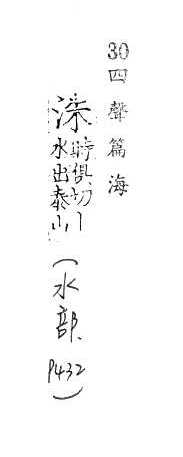 30四聲篇海
洙 時俱切川
水出泰山
(水部 P432)